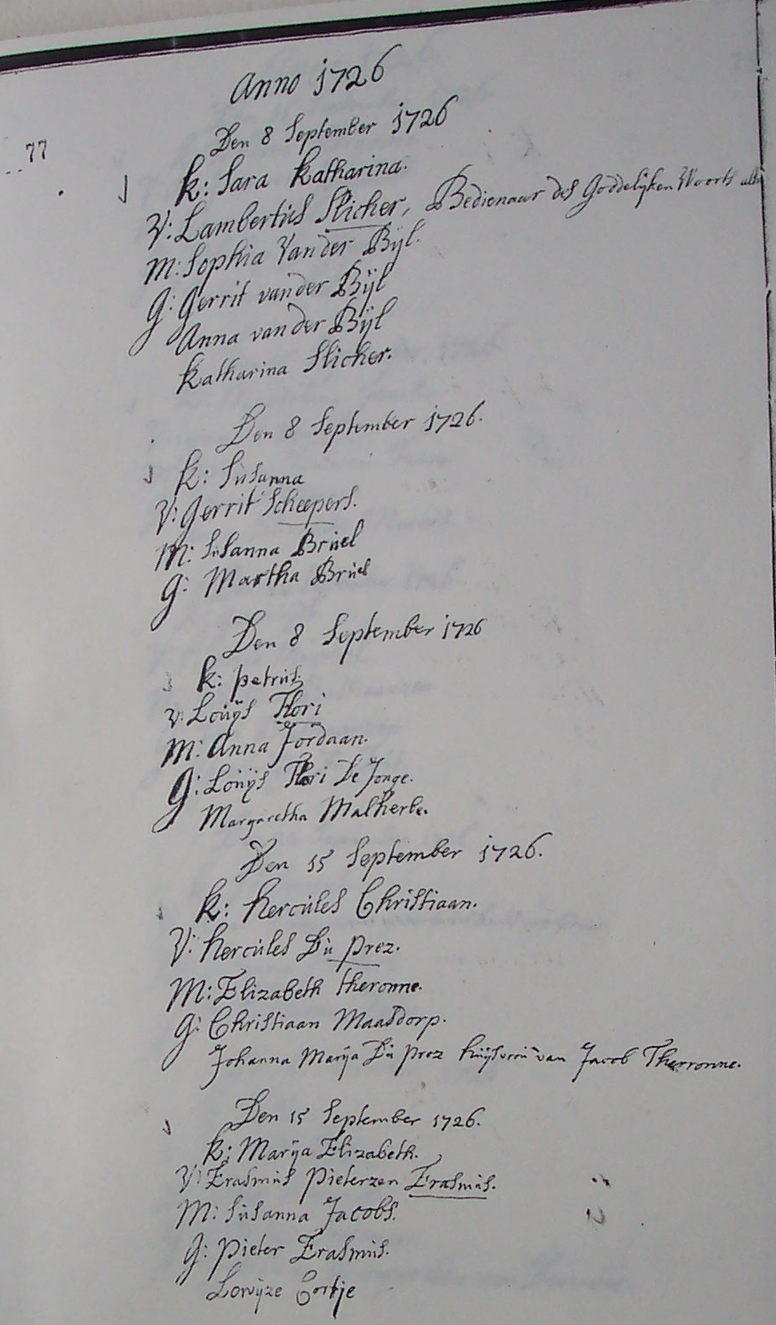 Anno 1726
77
Den 8 September 1726
k: Sara Katharina.
V: Lambertús Slicher, Bedienaar des Goddelijken Woorts
M: Sophia Vander Bijl.
G: Gerrit vander Bijl
Anna vander Bijl
Katharina Slicher.
Den 8 September 1726.
k: Súsanna
V: Gerrit Scheepers.
M: Súsanna Brúel
G: Martha Brúel
Den 8 September 1726
k: petrús.
V: Loúijs Flori
M: Anna Jordaan.
G: Loúijs Flori De Jonge.
Margaretha Malherbe.
Den 15 September 1726.
k: hercúles Christiaan.
V: hercúles Dú prez.
M: Elizabeth theronne.
G: Christiaan Maasdorp.
Johanna Marija Dú prez húijsvroú van Jacob Therronne.
Den 15 September 1726.
k: Marija Elizabeth.
V: Erasmús pieterzen Erasmús.
M: Súsanna Jacobs.
G: pieter Erasmús.
Lowijze Cortje